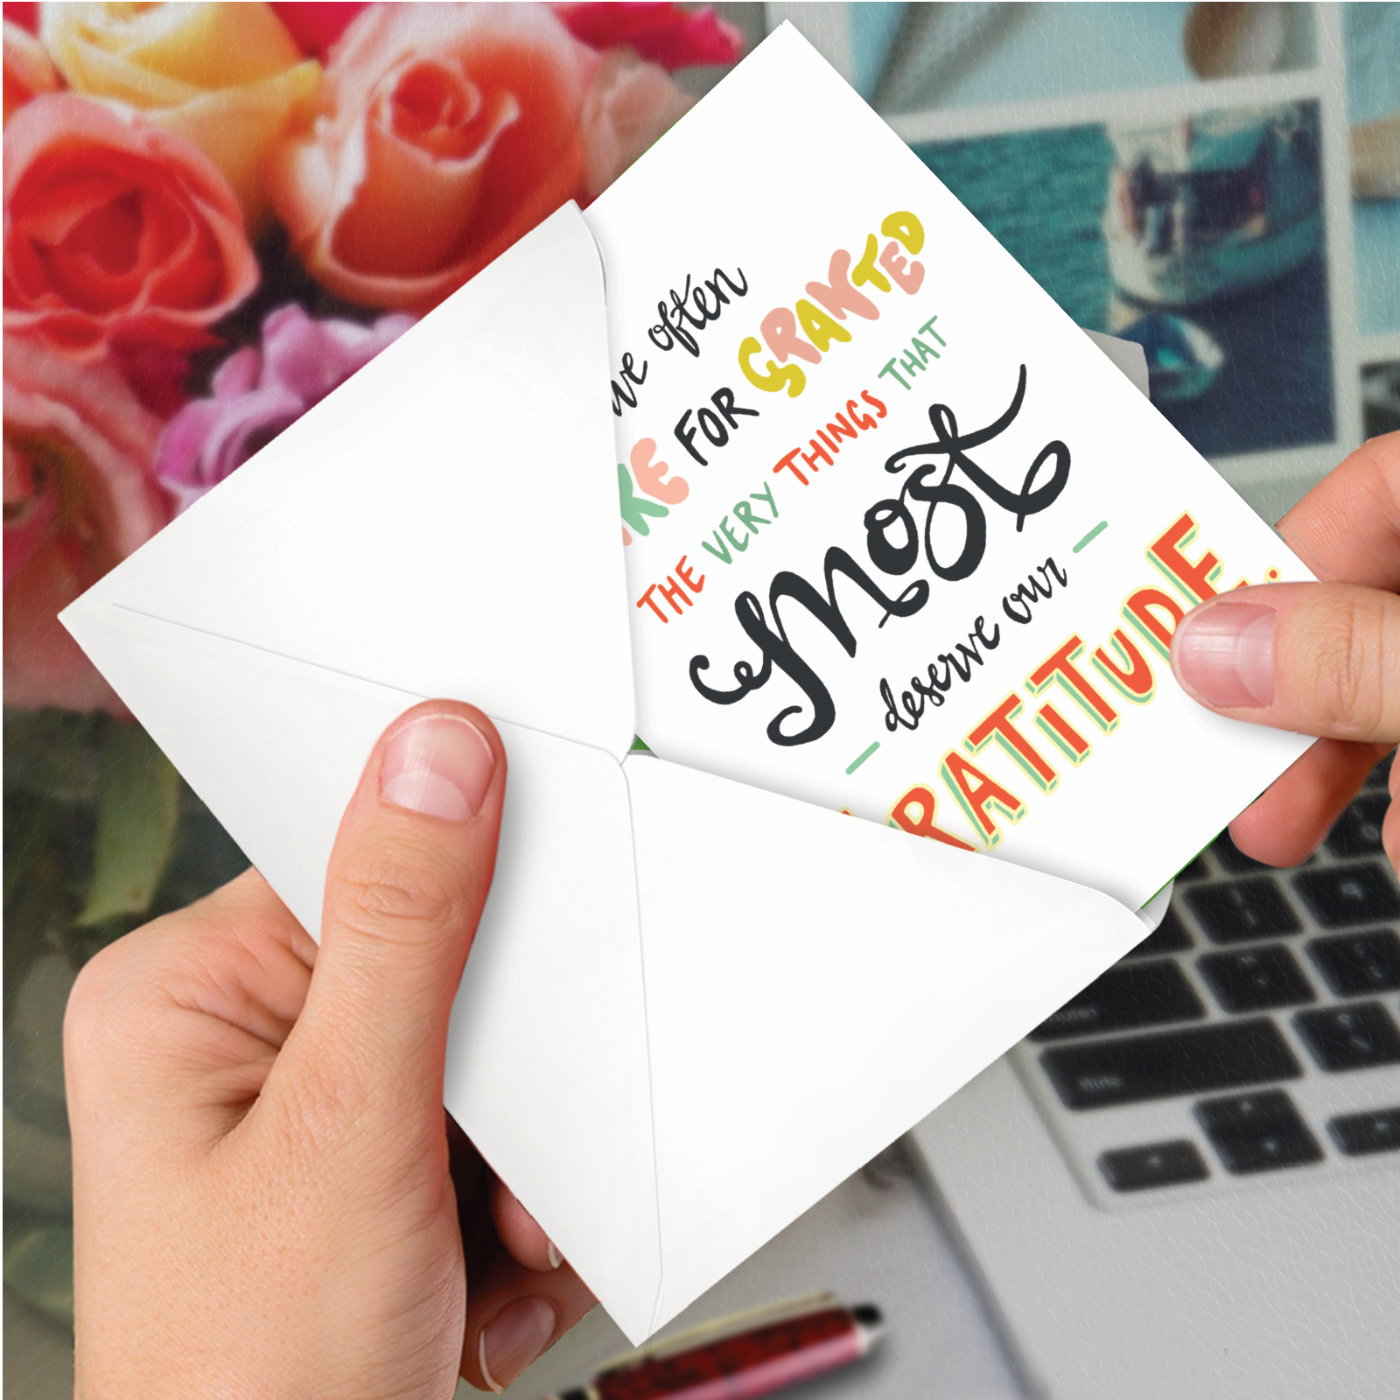 we often
AKE FOR GRANTED
THE VERY THINGS THAT
Most
deserve our
RATITUDE.